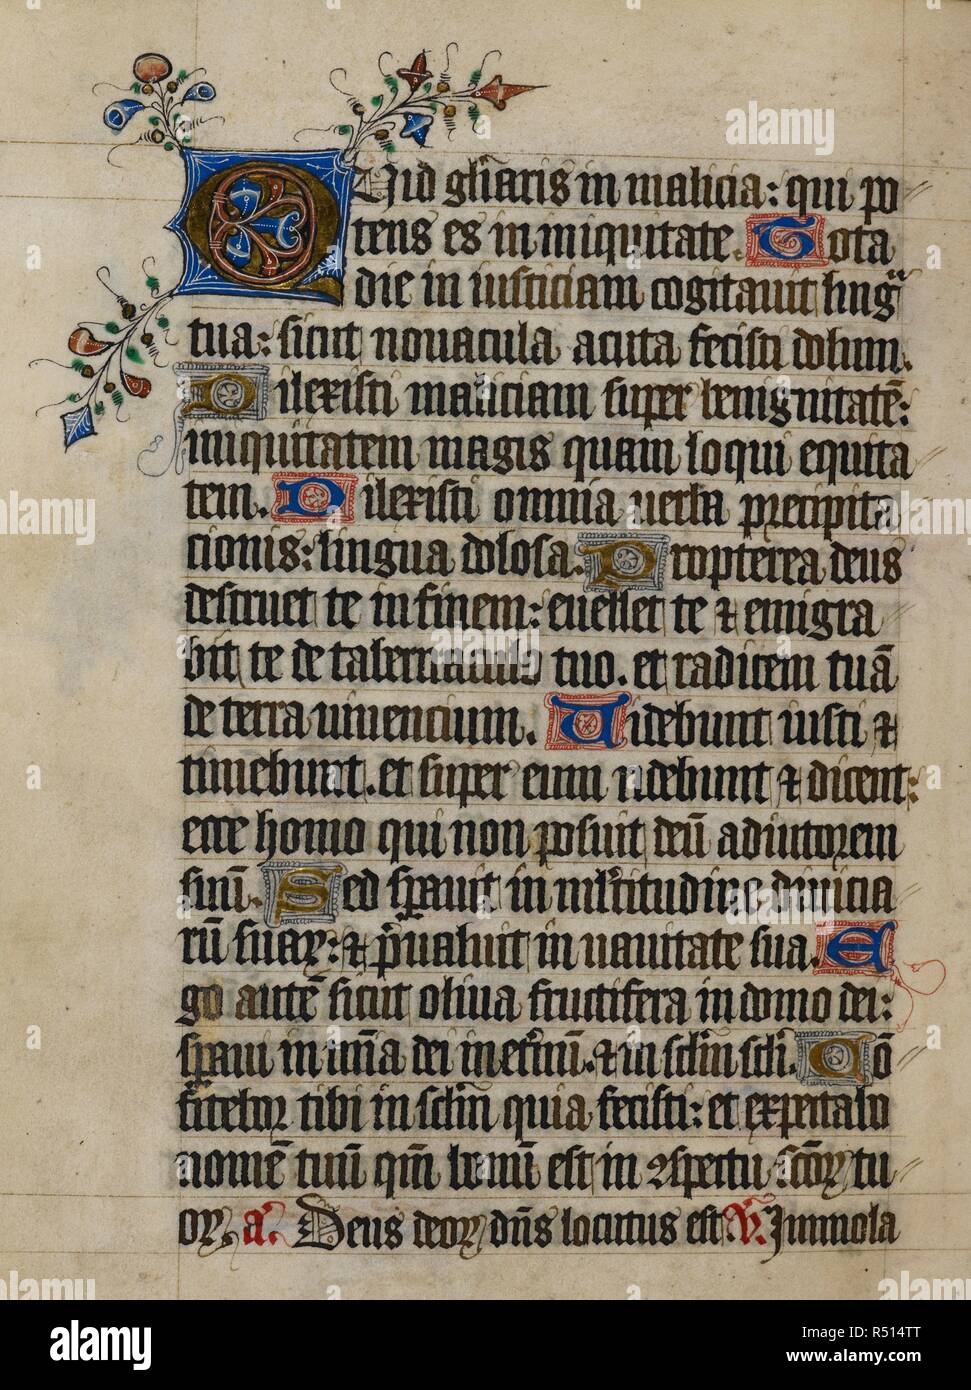 Quid gl̃iaris in malicia: qui po
tens es in iniquitate. Tota
die in iusticiam cogitauit lingᷓ
tua: sicut nouacula acuta fecisti dolum.
Dilexisti maliciam super benignitatē:
iniquitatem magis quam loqui equita
tem. Dilexisti omnia uerba precipita
cionis: lingua dolosa. Propterea deus
destruet te in finem: euellet te ⁊ emigra
bit te de tabernaculo tuo. et radicem tuā
de terra uiuencium. Uidebunt iusti ⁊
timebunt. et super eum ridebunt ⁊ dicent:
ecce homo qui non posuit deū adiutorem
suū. Sed sꝑauit in mĺtitudine diuicia
rū suaꝝ: ⁊ p̃ualuit in uanitate sua. E
go autē sicut oliua fructifera in domo dei:
sꝑaui in mīa dei in et̓nū. ⁊ in sclm̃ scli̅. Cō
fitebor tibi in sclm̃ quia fecisti: et expectabo
nomē tuū qm̃ bonū est in ꝯspectu sc̃oꝝ tu
oꝝ. a. Deus deoꝝ dñs locutus est. V̓. Immola
alamy
alamy
Image ID: R514TT
www.alamy.com